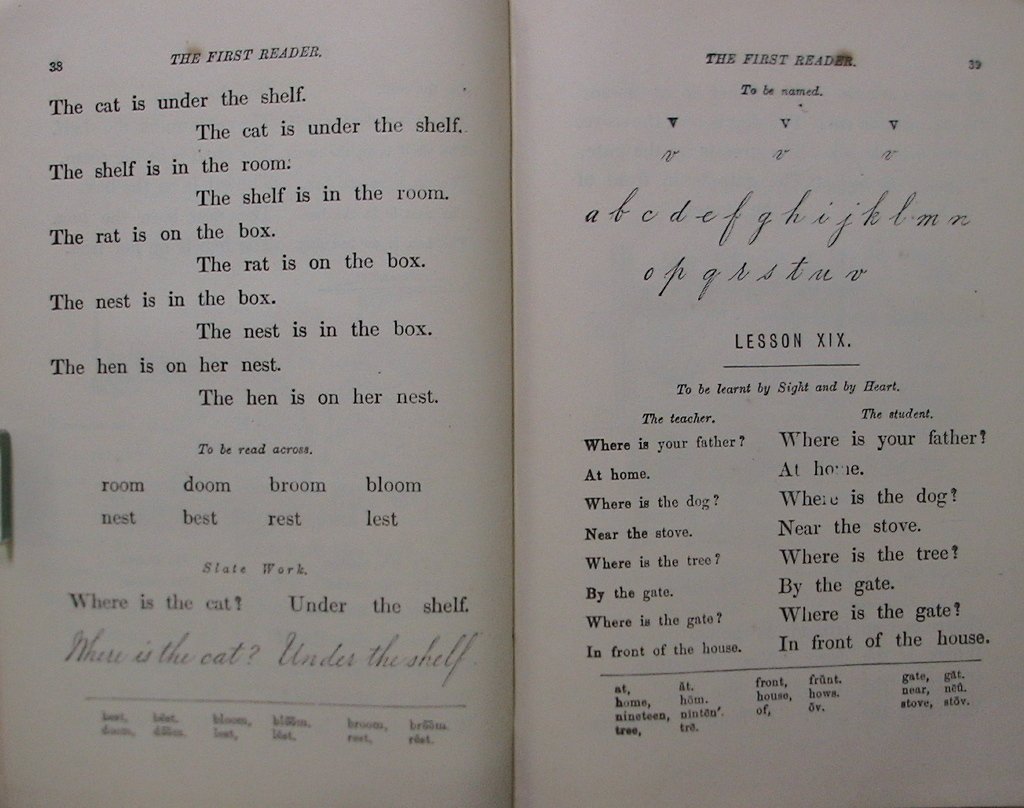 38
THE FIRST READER.
The cat is under the shelf.
The cat is under the shelf.
The shelf is in the room.
The shelf is in the room.
The rat is on the box.
The rat is on the box.
The nest is in the box.
The nest is in the box.
The hen is on her nest.
The hen is on her nest.
To be read across.
room doom broom bloom
nest best rest lest
Slate Work.
Where is the cat? Under the shelf.
Where is the cat? Under the shelf.
best, bĕst. bloom, broom,
doom, lest, lĕst. rest, rĕst.
THE FIRST READER.
39
To be named.
v v v
v v v
a b c d e f g h i j k l m n
o p q r s t u v
LESSON XIX.
To be learnt by Sight and by Heart.
The teacher. The student.
Where is your father? Where is your father?
At home. At home.
Where is the dog? Where is the dog?
Near the stove. Near the stove.
Where is the tree? Where is the tree?
By the gate. By the gate.
Where is the gate? Where is the gate?
In front of the house. In front of the house.
at, ăt. front, frŭnt. gate, gāt.
home, hōm. house, hows. near,
nineteen, nintēn'. of, ŏv. stove, stōv.
tree, trē.